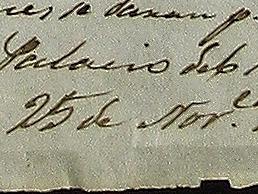 se daran p
Palacio del
25 de Nov.e